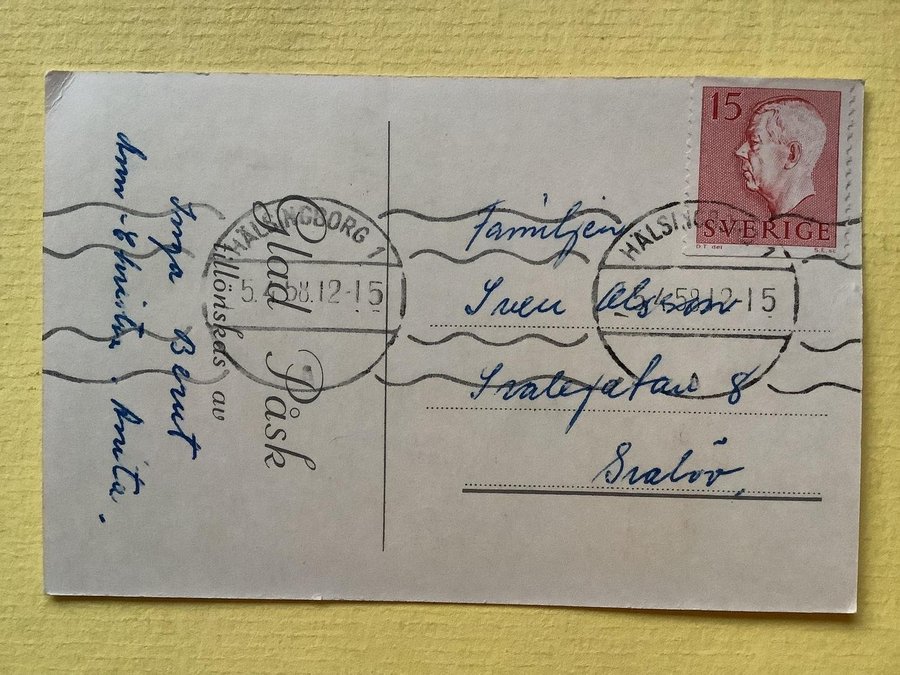 Glad Påsk
tillönskas av
Inga Bernt
Ann-Christin, Anita.
15
SVERIGE
HÄLSINGBORG 1
5.4.58.12-15
HÄLSINGBORG 1
5.4.58.12-15
Familjen
Sven Olsson
Svalegatan 8
Svalöv,